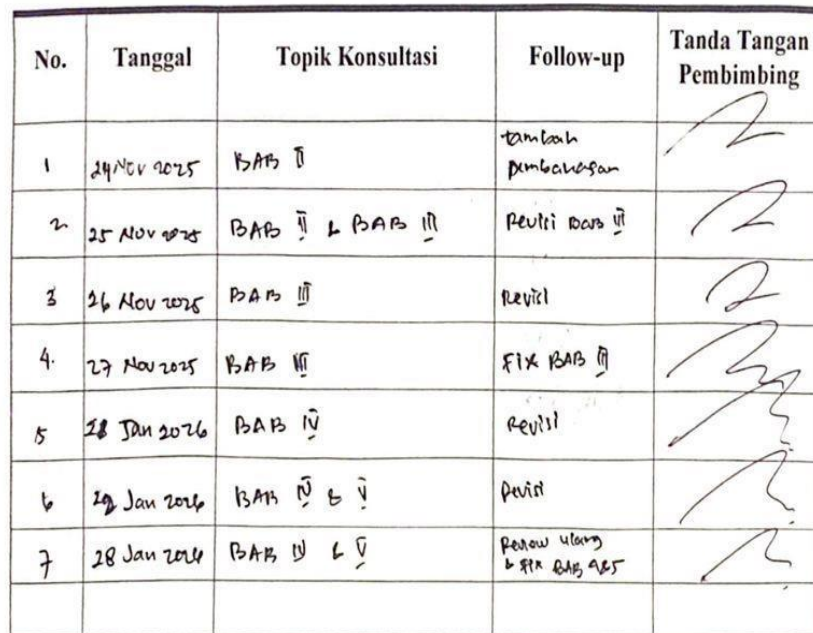 No. Tanggal Topik Konsultasi Follow-up Tanda Tangan Pembimbing
1 24 Nov 2025 BAB II tambah pembahasan
2. 25 Nov 2025 BAB II & BAB III Revisi BAB VI
3 26 Nov 2025 BAB III Revisi
4. 27 Nov 2025 BAB III FIX BAB III
5 Jan 2026 BAB IV Revisi
6 Jan 2026 BAB IV & V Revisi
7 28 Jan 2026 BAB IV & V Review ulang & FIX BAB 4&5